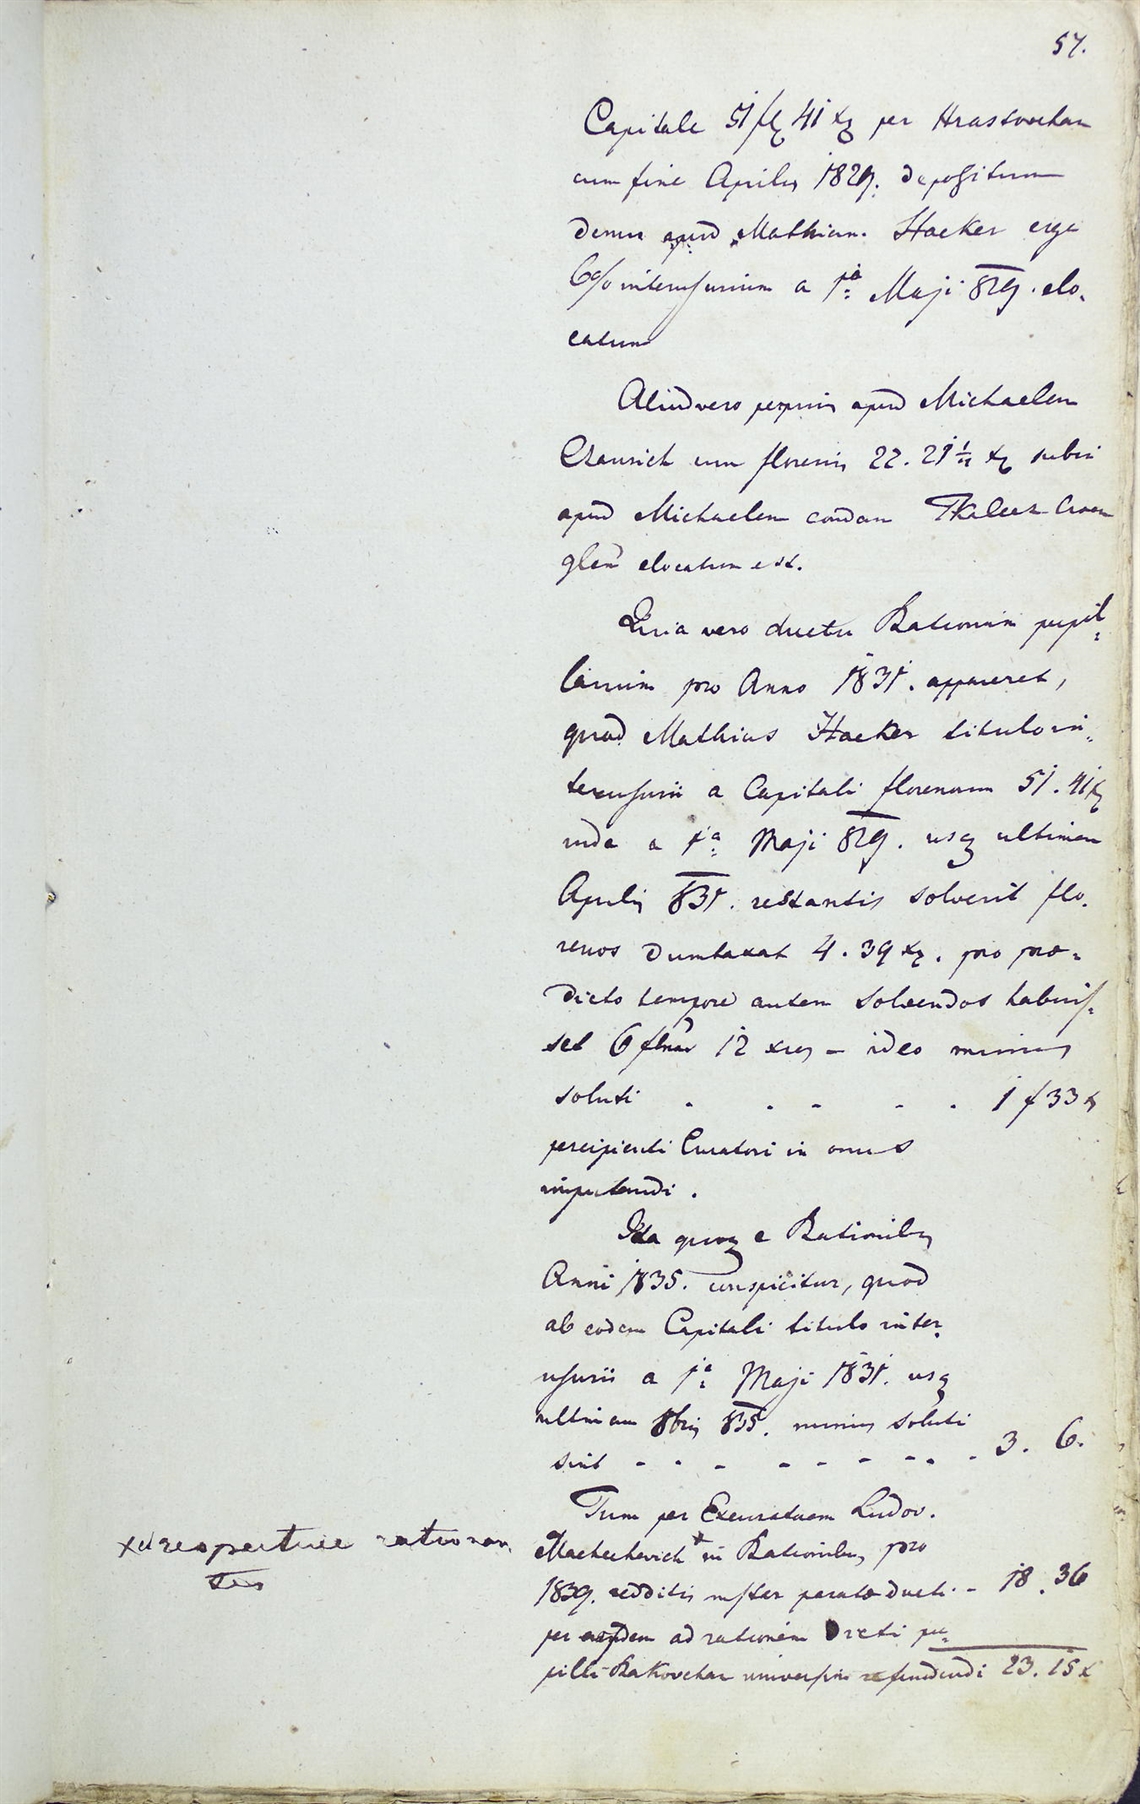 57.
Capitale 51 f 41 x per Hrastovchan
cum fine Aprilis 1829. depositum
denuo apud Mathiam Hacker erga
6% interusurium a 1a Maji 829. elo-
catum
Aliud vero perprius apud Michaelem
cum florenis 22. 21 x subin
apud Michaelem condam
elocatum est.
Quia vero ductu Rationum pupil-
larium pro Anno 1831. appareret,
quod Mathias Hacker titulo in-
terusurii a Capitali florenorum 51. 41 x
inde a 1a Maji 829. usq ultimam
Aprilis 831. restantis solverit flo-
renos dumtaxat 4. 39 x. pro prae-
dicto tempore autem solvendos habuis-
set 6 12 xres - ideo minus
soluti - - - - - 1 f 33 x
percipienti Curatori in onus
imputandi.
Ita quoq e Rationibus
Anni 1835. conspicitur, quod
ab eodem Capitali titulo inter-
usurii a 1a Maji 1831. usq
ultimam 8bris 835. minus soluti
sint - - - - - - - - 3. 6.
Tum per Excuratorem Ludov.
Machechevich + in Rationibus pro
1839. redditis ducti - 18. 36
per eundem ad rationem pu-
pilli Rakovchan refundendi 23. 15 x
respective rationan-
tis